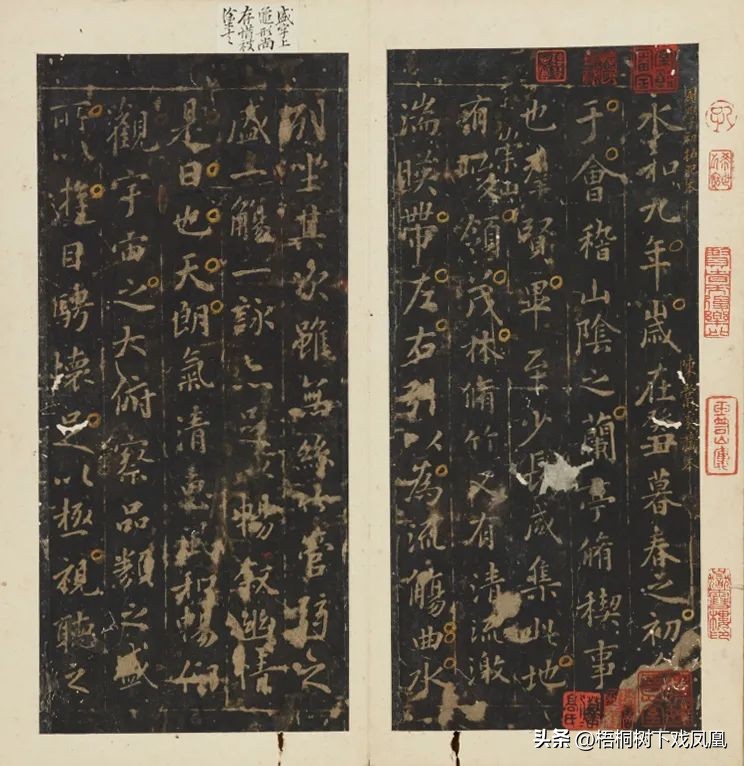 永和九年歲在癸丑暮春之初會
于會稽山陰之蘭亭脩稧事
也羣賢畢至少長咸集此地
有崇山峻領茂林脩竹又有清流激
湍暎帶左右引以為流觴曲水
盛字上
龜形尚
存惜被
列坐其次雖無絲竹管弦之
盛一觴一詠亦足以暢敘幽情
是日也天朗氣清惠風和暢仰
觀宇宙之大俯察品類之盛
所以遊目騁懷足以極視聽之
头条 @梧桐树下戏凤凰